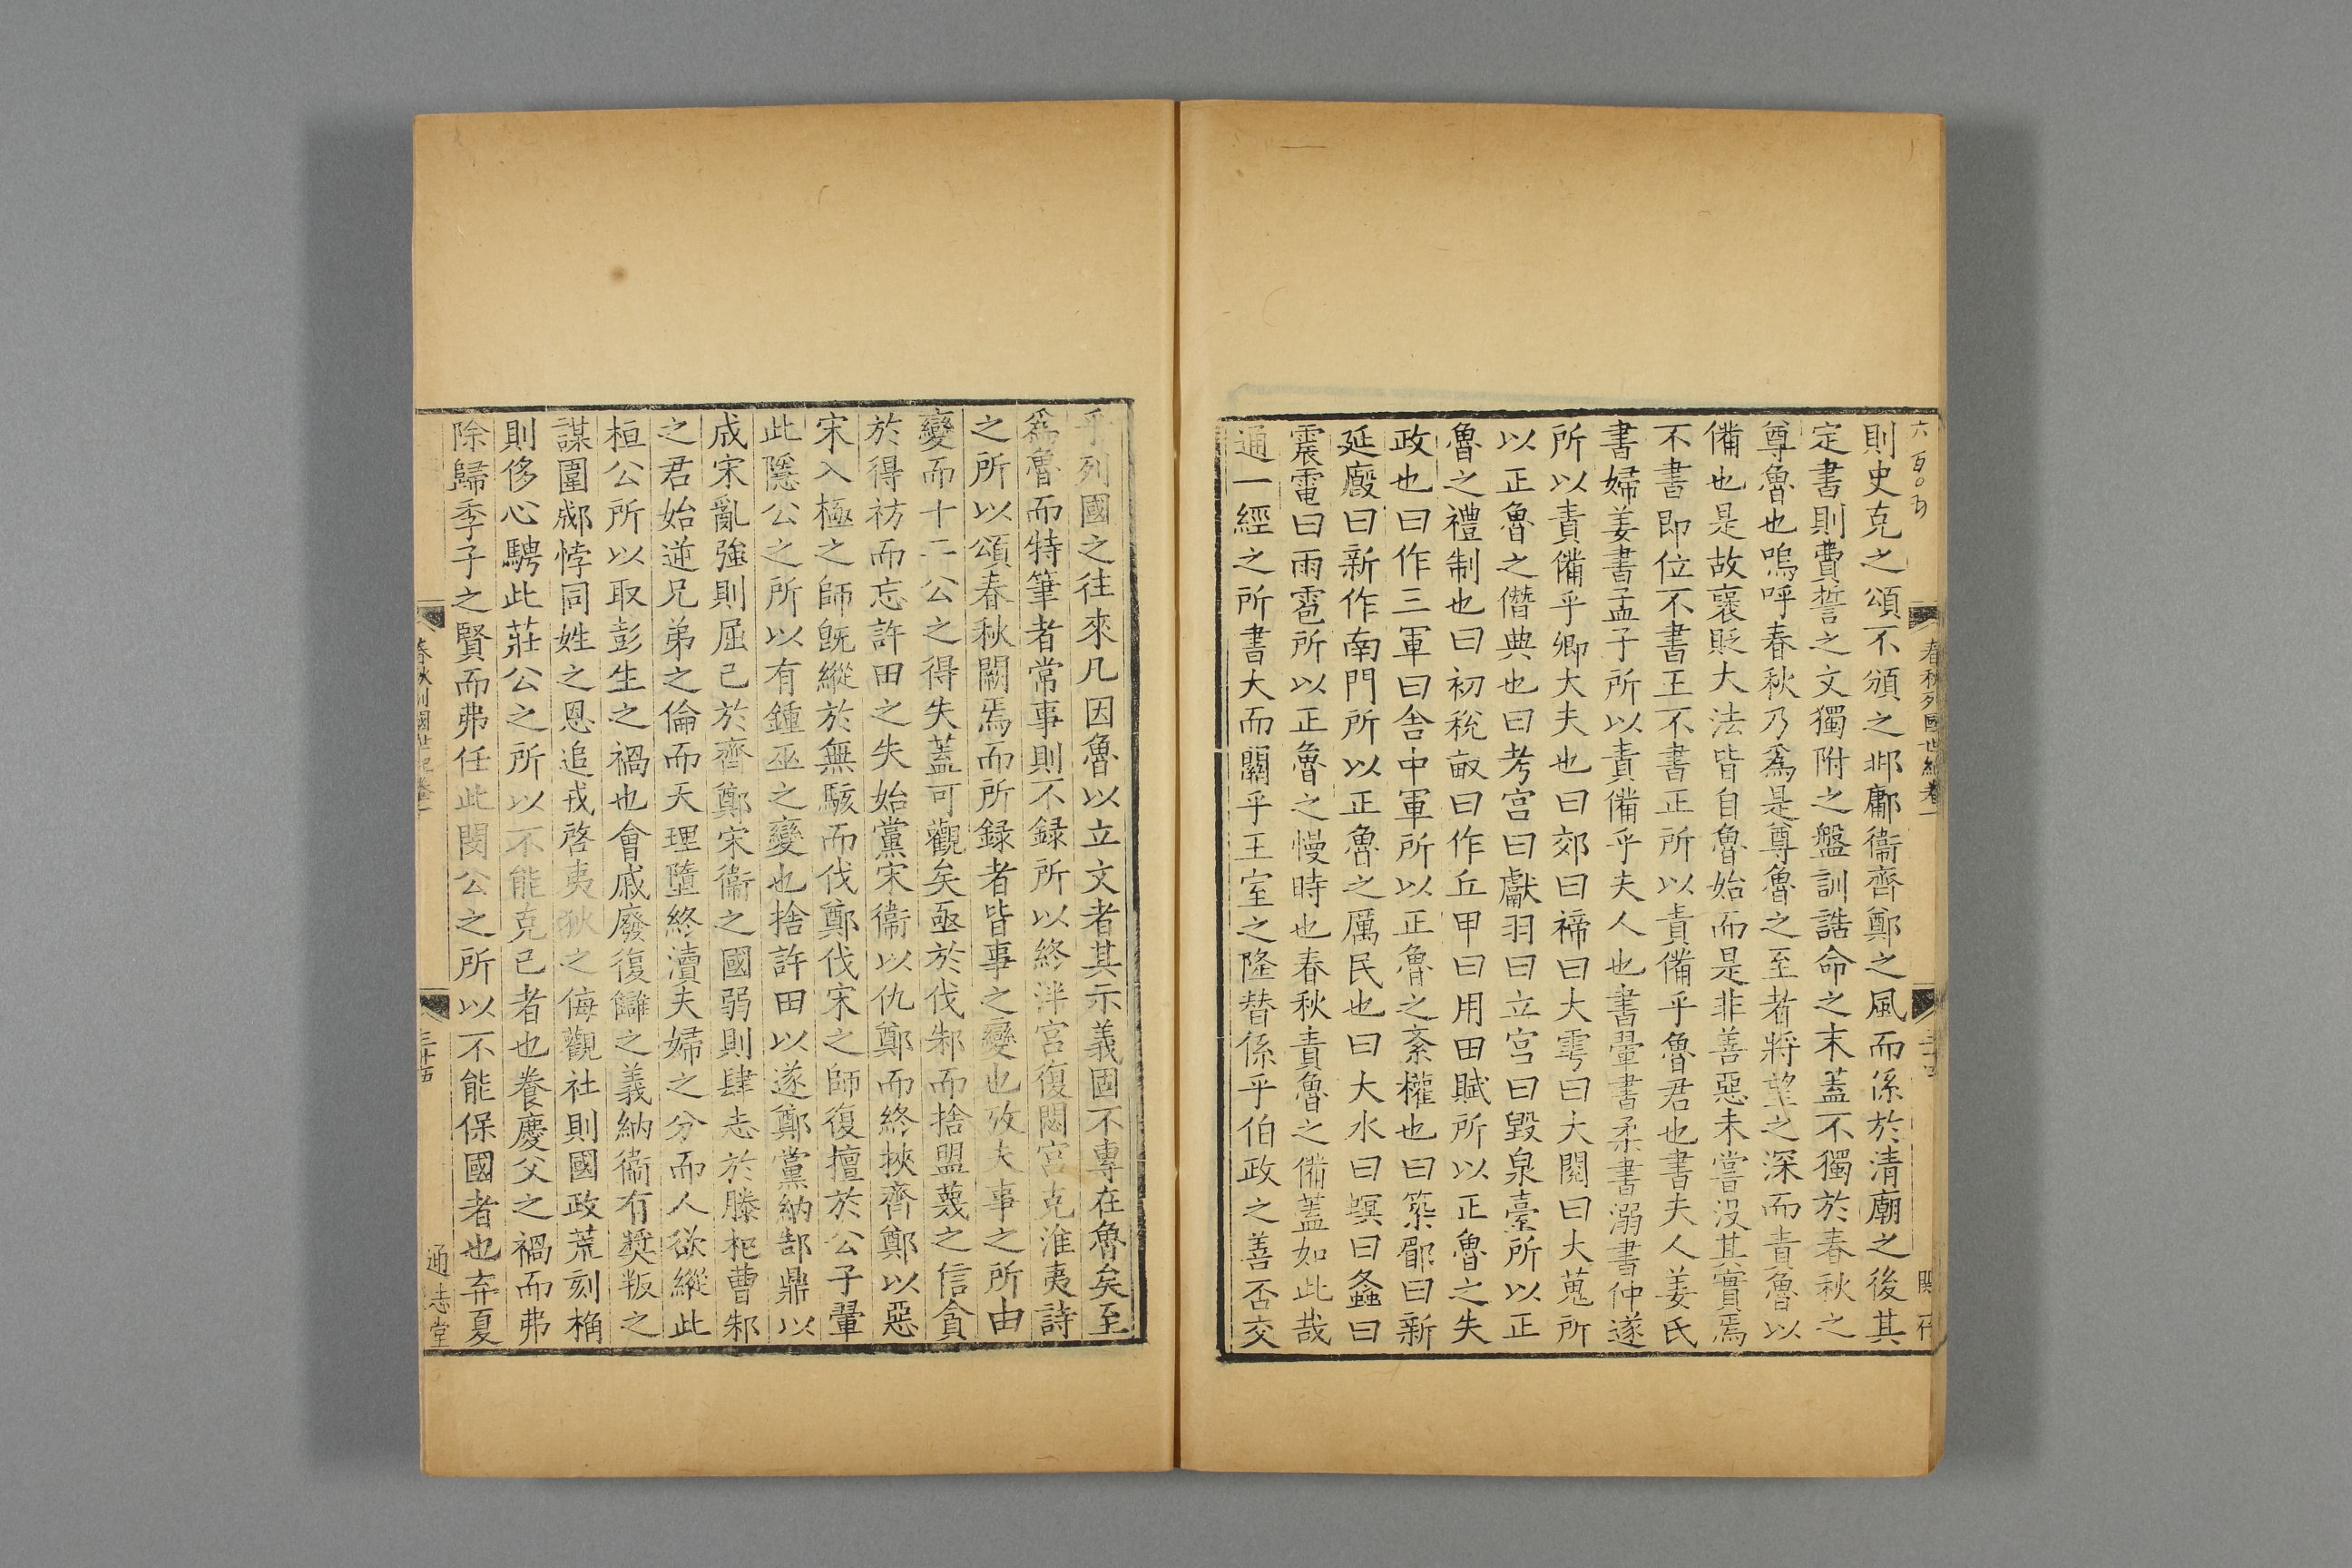 六百〇五
春秋列國世紀卷一
則史克之頌不頒之邶鄘衞齊鄭之風而係於清廟之後其
定書則費誓之文獨附之盤訓誥命之末蓋不獨於春秋之
尊魯也嗚呼春秋乃爲是尊魯之至者將望之深而責魯以
備也是故襃貶大法皆自魯始而是非善惡未嘗沒其實焉
不書即位不書王不書正所以責備乎魯君也書夫人姜氏
書婦姜書孟子所以責備乎夫人也書翬書柔書溺書仲遂
所以責備乎卿大夫也曰郊曰禘曰大雩曰大閱曰大蒐所
以正魯之僭典也曰考宫曰獻羽曰立宫曰毀泉臺所以正
魯之禮制也曰初稅畝曰作丘甲曰用田賦所以正魯之失
政也曰作三軍曰舍中軍所以正魯之紊權也曰築郿曰新
延廏曰新作南門所以正魯之厲民也曰大水曰螟曰螽曰
震電曰雨雹所以正魯之慢時也春秋責魯之備蓋如此哉
通一經之所書大而關乎王室之隆替係乎伯政之善否交
乎列國之往來凡因魯以立文者其示義固不專在魯矣至
爲魯而特筆者常事則不録所以終泮宫復閟宫克淮夷詩
之所以頌春秋闕焉而所録者皆事之變也攷夫事之所由
變而十二公之得失蓋可觀矣亟於伐邾而捨盟蔑之信貪
於得祊而忘許田之失始黨宋衞以仇鄭而終挾齊鄭以惡
宋入極之師旣縱於無駭而伐鄭伐宋之師復擅於公子翬
此隱公之所以有鍾巫之變也捨許田以遂鄭黨納郜鼎以
成宋亂強則屈己於齊鄭宋衞之國弱則肆志於滕杞曹邾
之君始逆兄弟之倫而天理墮終瀆夫婦之分而人欲縱此
桓公所以取彭生之禍也會戚廢復讎之義納衞有奬叛之
謀圍郕悖同姓之恩追戎啓夷狄之侮觀社則國政荒刻桷
則侈心騁此莊公之所以不能克己者也養慶父之禍而弗
除歸季子之賢而弗任此閔公之所以不能保國者也弃夏
春秋列國世紀卷一
三十五
通志堂